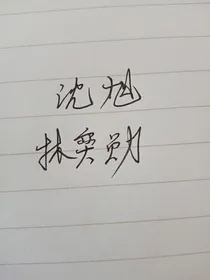 沈旭
林奕勋